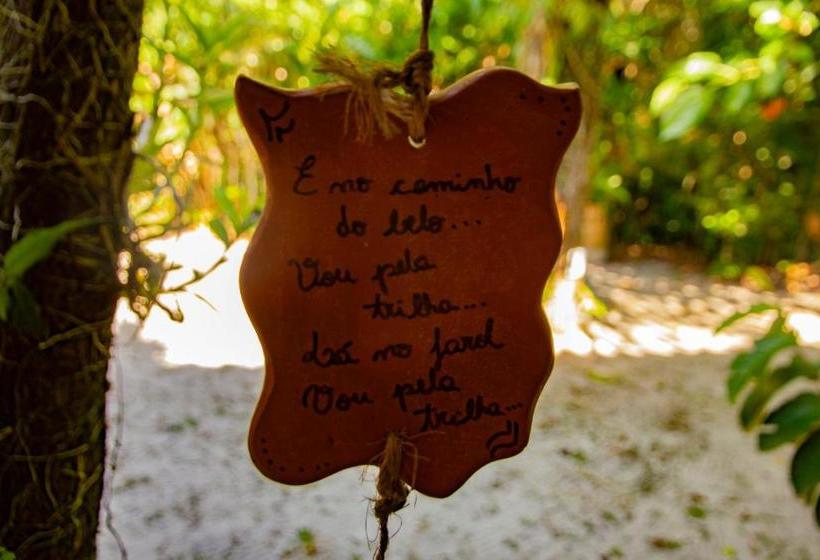 E no caminho
do belo...
Vou pela
trilha...
Lá no farol
Vou pela
trilha...